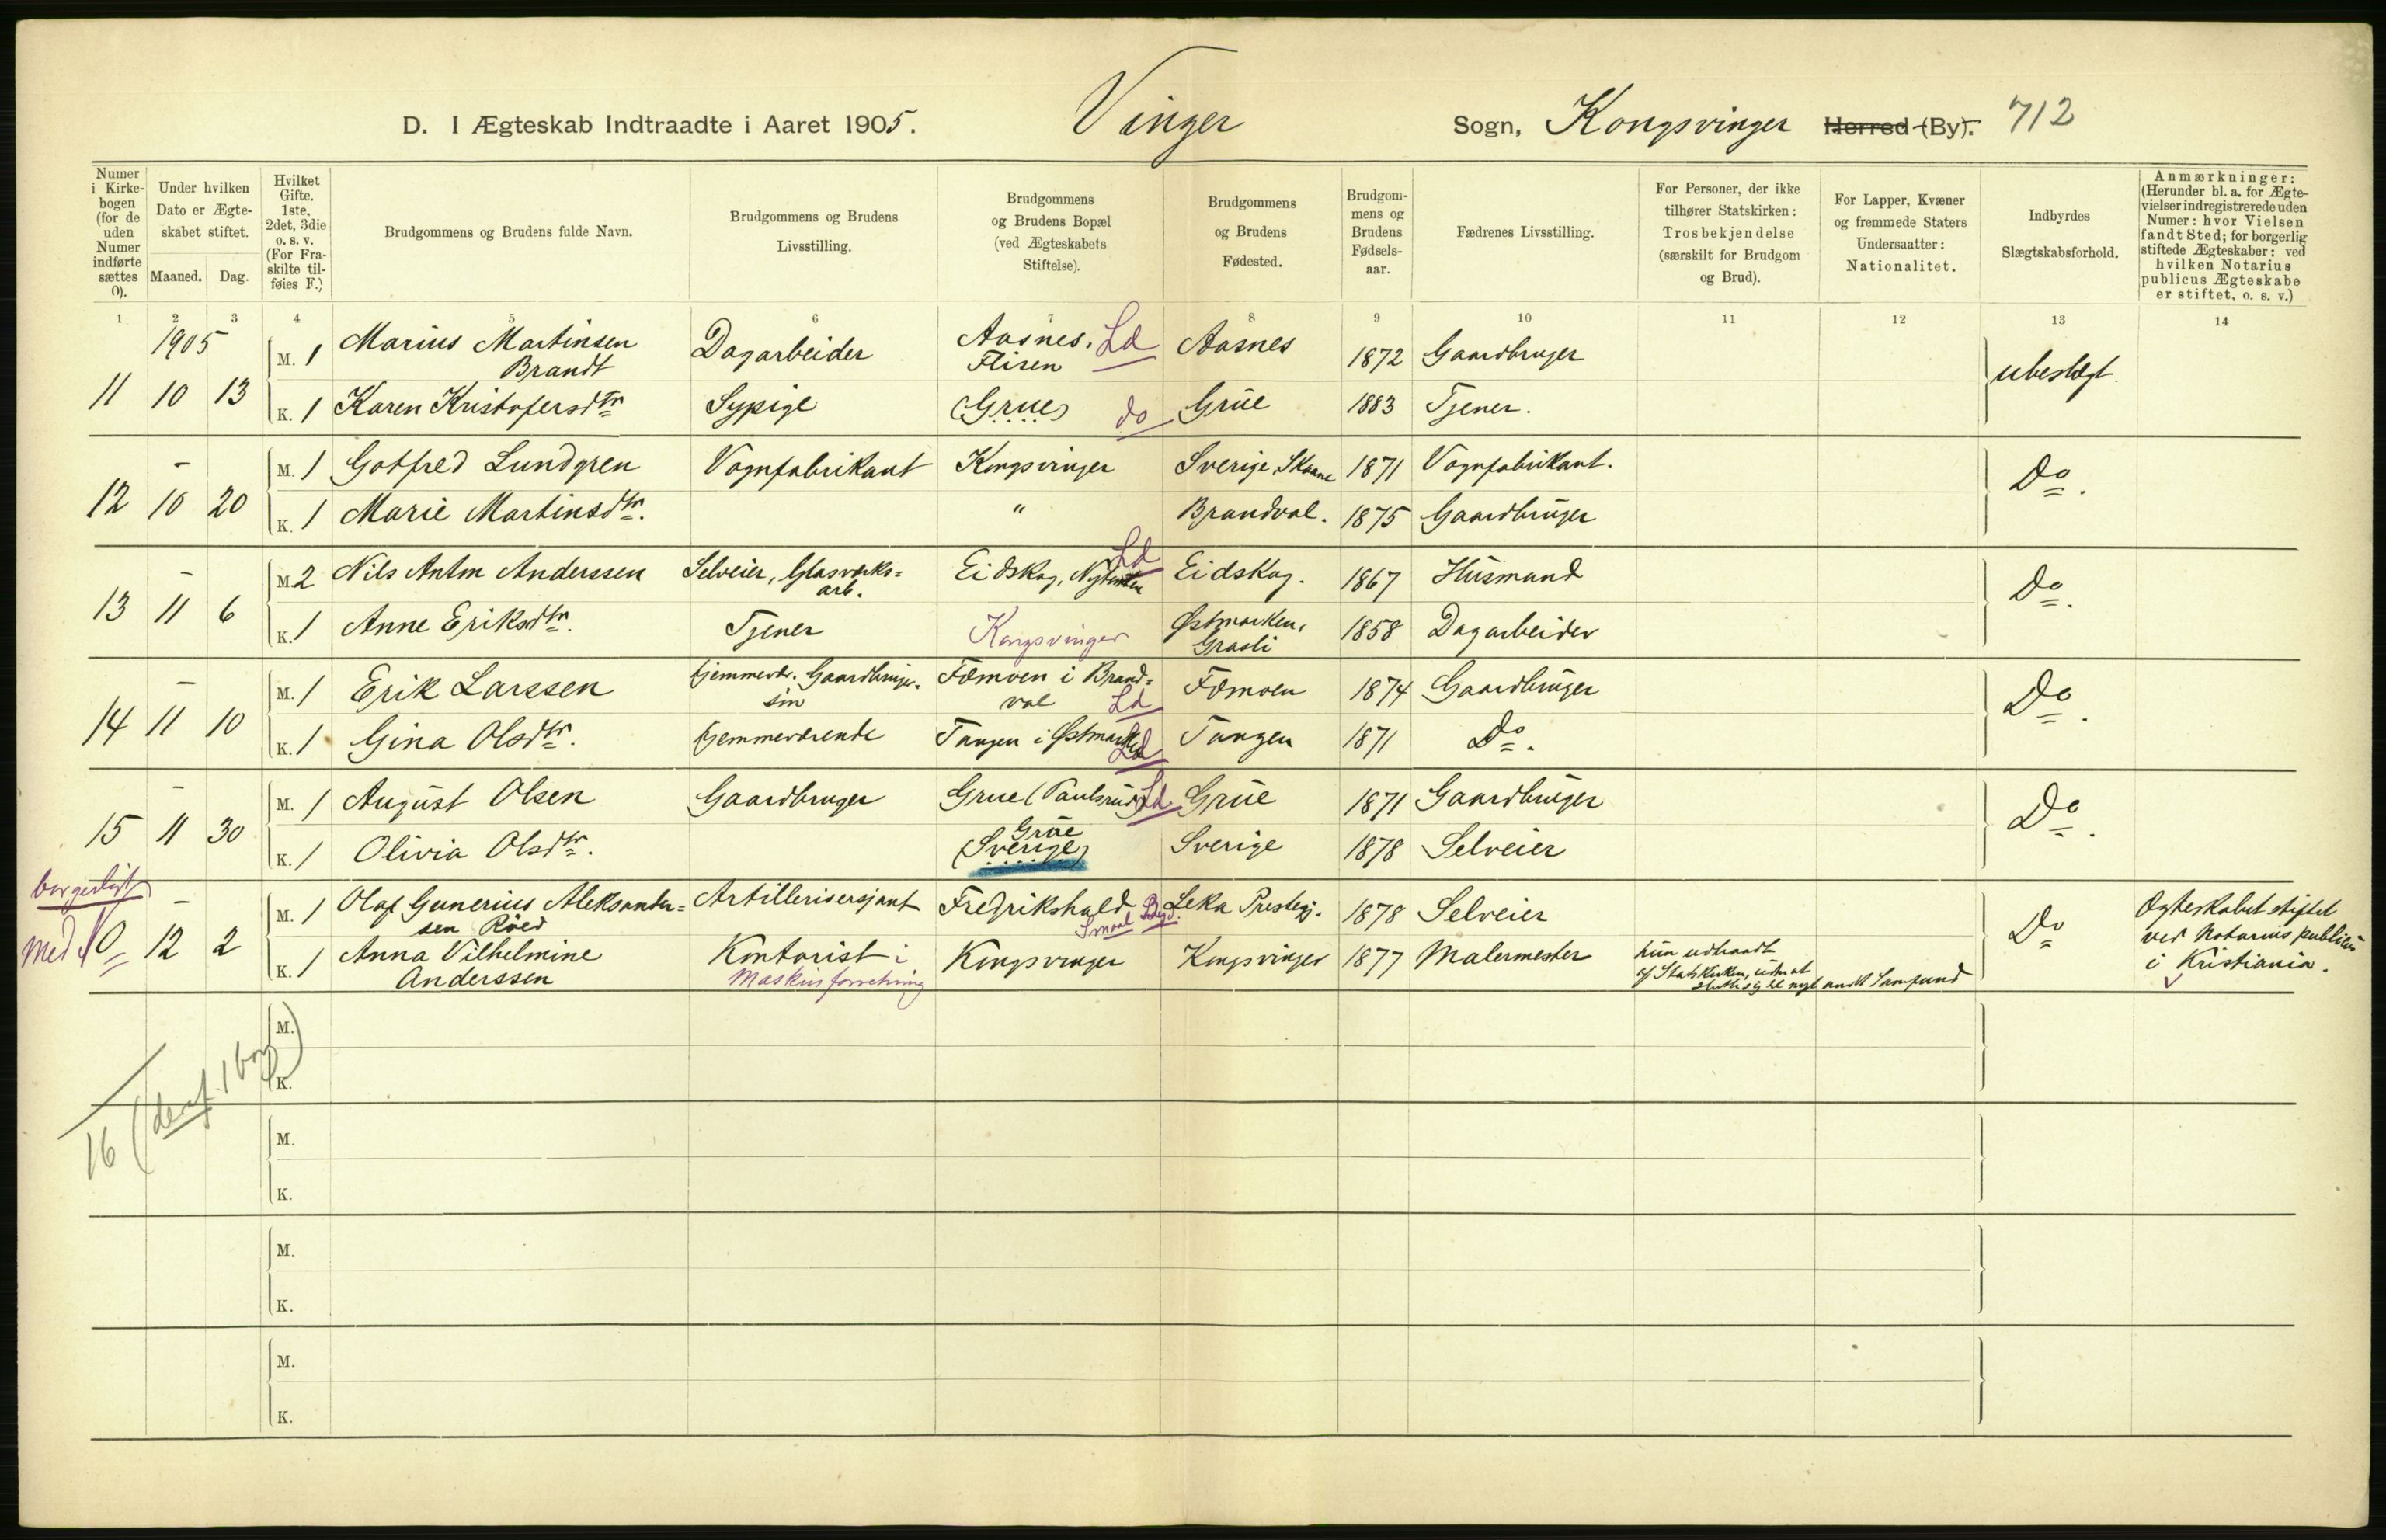 D. I Ægteskab Indtraadte i Aaret 1905. Vinger Sogn, Kongsvinger Herred (By). 712
Numer i Kirkebogen (for de uden Numer indførte sættes 0).
Under hvilken Dato er Ægteskabet stiftet.
Maaned. Dag.
Hvilket Gifte. 1ste, 2det, 3die o. s. v. (For Fraskilte tilføies F.)
Brudgommens og Brudens fulde Navn.
Brudgommens og Brudens Livsstilling.
Brudgommens og Brudens Bopæl (ved Ægteskabets Stiftelse).
Brudgommens og Brudens Fødested.
Brudgommens og Brudens Fødselsaar.
Fædrenes Livsstilling.
For Personer, der ikke tilhører Statskirken: Trosbekjendelse (særskilt for Brudgom og Brud).
For Lapper, Kvæner og fremmede Staters Undersaatter: Nationalitet.
Indbyrdes Slægtskabsforhold.
Anmærkninger: (Herunder bl. a. for Ægtevielser indregistrerede uden Numer: hvor Vielsen fandt Sted; for borgerlig stiftede Ægteskaber: ved hvilken Notarius publicus Ægteskabe er stiftet, o. s. v.)
1 2 3 4 5 6 7 8 9 10 11 12 13 14
1905
M. 1 Marius Martinsen Brandt Dagarbeider Aasnes, Flisen Ld Aasnes 1872 Gaardbruger ubeslægt.
11 10 13
K. 1 Karen Kristofersdtr Sypige (Grue) do Grue 1883 Tjener.
M. 1 Gotfred Lundgren Vognfabrikant Kongsvinger Sverige, Skaane 1871 Vognfabrikant. Do.
12 10 20
K. 1 Marie Martinsdtr. " Brandval. 1875 Gaardbruger
M. 2 Nils Anton Anderssen Selveier, Glasværks= arb. Eidskog, Ld Eidskog. 1867 Husmand Do.
13 11 6
K. 1 Anne Eriksdtr. Tjener Kongsvinger Østmarken, Grasli 1858 Dagarbeider
M. 1 Erik Larssen Hjemmevær. Gaardbruger= søn Fæmoen i Brand= val Ld Fæmoen 1874 Gaardbruger Do.
14 11 10
K. 1 Gina Olsdtr. Hjemmeværende Tangen i Østmarken Ld Tangen 1871 Do.
M. 1 August Olsen Gaardbruger Grue (Paulsrud) Ld Grue 1871 Gaardbruger Do.
15 11 30
K. 1 Olivia Olsdtr. Grue (Sverige) Sverige 1878 Selveier
borgerligt
M. 1 Olaf Gunerius Aleksander= sen Röed Artillerisersjant Fredrikshald Smaal Byd. Leka Prestegj. 1878 Selveier Do Ægteskabet stiftet ved Notarius publicus i Kristiania.
Med 0 12 2
K. 1 Anna Vilhelmine Anderssen Kontorist i Maskinforretning Kongsvinger Kongsvinger 1877 Malermester hun udtraadt af Statskirken, uden at slutte sig til nyt andet Samfund
M.
K.
16 (deraf 1 borg)
M.
K.
M.
K.
M.
K.